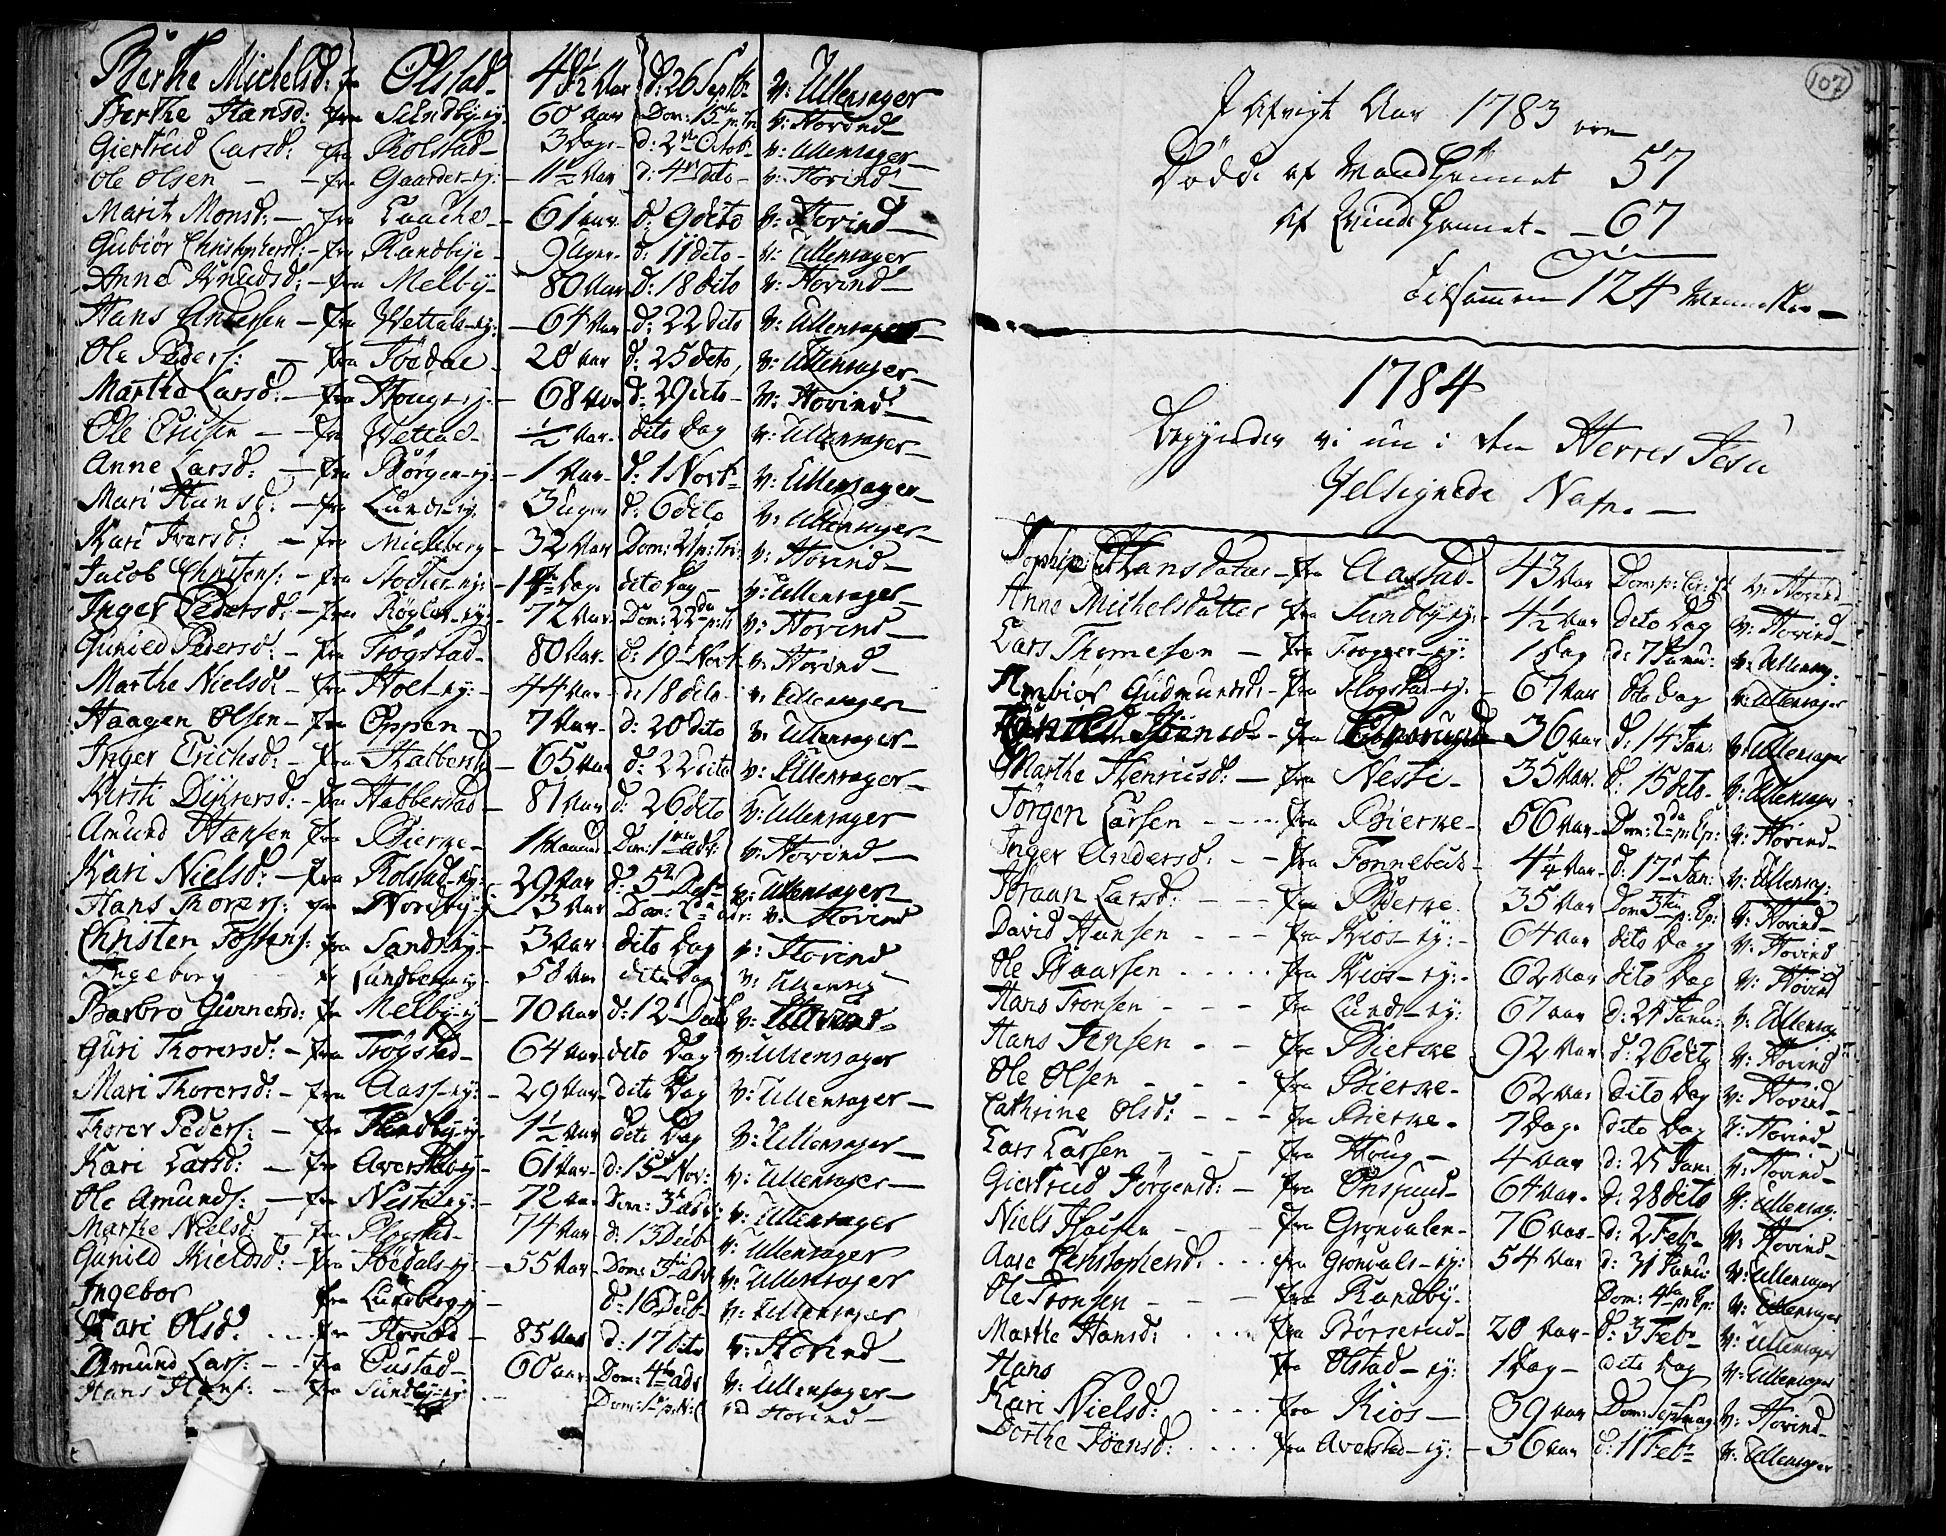 Berthe Michelsd: fra Ølstad 48½ Aar d: 26 Septb: v: Ullensager
Berthe Hansd: fra Sundby-ej: 60 Aar Dom: 15 p: tr: v: Hovind
Giertrud Larsd: fra Rolstad 3 Dage d: 2 Octob: v: Ullensager
Ole Olsen fra Gaarder-ej: 1½ Aar d: 4 dito v: Hovind
Marit Monsd: fra Laache 61 aar d: 9 dito v: Hovind
Gubiør Christophersd: fra Randbye 9 Uger d: 11 dito v: Ullensager
Anne Knudsd: fra Melby 80 Aar d: 18 dito v: Hovind
Hans Andersen fra Wettals-ej: 64 Aar d: 22 dito v: Ullensager
Ole Peders: fra 28 Aar d: 25 dito v: Ullensager
Martha Larsd: fra Houg-ej: 68 Aar d: 29 dito v: Hovind
Ole fra Wettal ½ Aar dito Dag v: Ullensager
Anne Larsd: fra Børgen-ej: 1 Aar d: 1 Novb: v: Ullensager
Mari Hansd: fra Lunds-ej: 3 uger d: 6 dito v: Ullensager
Kari Ivarsd: fra Micheberg 32 Aar Dom: 21 p: Tri: v: Hovind
Jacob Christens: fra 14 Dage dito Dag v: Ullensager
Inger Pedersd: fra Røgler-ej: 77 Aar Dom: 22 p: tr: v: Hovind
Gunild Pedersd: fra Trøgstad 80 Aar d: 19 Novb: v: Hovind
Marthe Nielsd: fra Holt-ej: 44 Aar d: 18 dito v: Ullensager
Haagen Olsen fra Oppen 7 Aar d: 20 dito v: Ullensager
Inger Erichsd: fra 65 Aar d: 22 dito v: Ullensager
Kirsti fra Habberstad 81 Aar d: 26 dito v: Ullensager
Amund Hansen fra Bierke 1 Maaned Dom: 1 adv: v: Hovind
Kari Nielsd: fra Rolstad-ej: 29 Aar d: 5 Decb: v: Ullensager
Hans Thorers: fra Nordby 3 Aar Dom: 2 adv: v: Hovind
Christen fra Sands-ej: 3 Aar dito Dag v: Hovind
Ingeborg fr Lundberg-ej: 58 Aar dito Dag v: Ullensag
Barbro Gunnersd: fra Melby-ej 70 Aar d: 12 Decb v: Hovind
Guri Thorersd: fra Trøgstad 64 Aar dito Dag v: Ullensager
Mari Thorersd: fra Aass-ej: 29 Aar dito Dag v: Ullensager
Thorer Peders: fra 1½ Aar dito Dag v: Ullensager
Kari Larsd: fra 61 Aar d: 15 Nov: v: Ullensager
Ole Amunds: fra 72 Aar Dom: 3 adv: v: Ullensager
Marthe Nielsd: fra 74 Aar d: 13 Decb v: Ullensager
Gunild Kieldsd: fra 55 Aar Dom: 3 adv v: Ullensager
Ingebor fra Lundberg-ej d: 16 Decb v: Ullensager
Kari Olsd: fra 85 Aar d: 17 dito v: Hovind
Amund Lars: fra Gustad 60 aar Dom: 4 adv v: Ullensager
Hans Hans: fra Sundby-ej ved Hovind
107
I Afvigt Aar 1783 ere
Døde af Mandkiønnet 57
af Qvindekiønnet 67
tilsammen 124 Mennesker
1784
Begynder vi nu i den Herres Jesu
Velsignede Nafn.
Hansdatter fra Aastad 43 Aar v: Hovind
Anne Michelsdatter fra Sundby-ej: 4½ Aar dito Dag v: Hovind
Lars Thomesen fra 1 Dag d: 7 Janu: v: Ullensag:
Gudmundsd: fra Flogstad-ej: 67 Aar dito Dag v: Ullensager
fra 36 Aar d: 14 Jan: v: Ullensager
Marthe Henricsd: fra 35 Aar d: 15 dito v: Ullensager
Jørgen Larsen fra Bierke 56 Aar Dom: 2 p: Ep: v: Hovind
Inger Andersd: fra 4¼ Aar d: 17 Jan: v: Ullensag:
Larsd: fra Bierke 35 Aar Dom: 3 p: Ep: v: Hovind
David Hansen fra Kios-ej: 64 Aar dito Dag v: Hovind
Ole fra Kios-ej: 62 Aar dito Dag v: Hovind
Hans Tronsen fra Lunds-ej: 67 Aar d: 24 Janu: v: Ullensag:
Hans Jensen fra Bierke 92 Aar d: 26 dito v: Hovind
Ole Olsen fra Bierke 62 Aar dito Dag v: Hovind
Cathrine Olsd: fra Bierke 7 Dage dito Dag v: Hovind
Lars Larsen fra 4 Aar d: 27 Jan: v: Hovind
Giertrud Jørgensd: fra Onsrud 64 Aar d: 28 dito v: Ullensag:
Niels fra Grøndalen 76 Aar d: 2 Feb: v: Hovind
Aase Christophersd: fra Grøndals-ej: 54 Aar d: 31 Janu: v: Ullensager
Ole Tronsen fra Randby Dom: 4 p: Ep: v: Ullensager
Marthe Hansd: fra Børserud 28 Aar d: 3 Feb: v: Ullensager
Hans fra Ølstad-ej: 1 Dag dito Dag v: Ullensager
Kari Nielsd: fra Kios 39 Aar v: Hovind
Berthe Joensd: fra Averstad-ej: 56 Aar d: 11 Feb: v: Ullensager